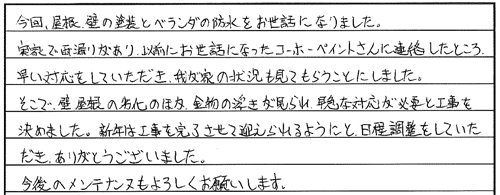 今回、屋根、壁の塗装とベランダの防水をお世話になりました。
実家で雨漏りがあり、以前にお世話になったコーホーペイントさんに連絡したところ、
早い対応をしていただき、我が家の状況も見てもらうことにしました。
そこで、壁屋根の劣化のほか、金物の浮きが見られ、早急な対応が必要と工事を
決めました。新年は工事を完了させて迎えられるようにと、日程調整をしていた
だき、ありがとうございました。
今後のメンテナンスもよろしくお願いします。